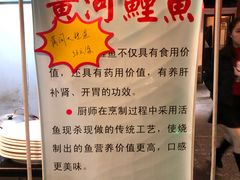 黄河鲤鱼
黄河大鲤鱼
38元/条
鱼不仅具有食用价
值，还具有药用价值，有养肝
补肾、开胃的功效。
厨师在烹制过程中采用活
鱼现杀现做的传统工艺，使烧
制出的鱼营养价值更高，口感
更美味。